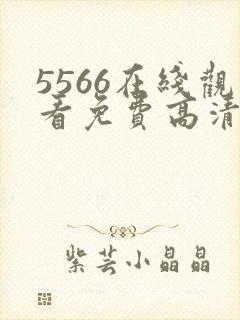 5566在綫觀
看免費高清
紫芸小晶晶